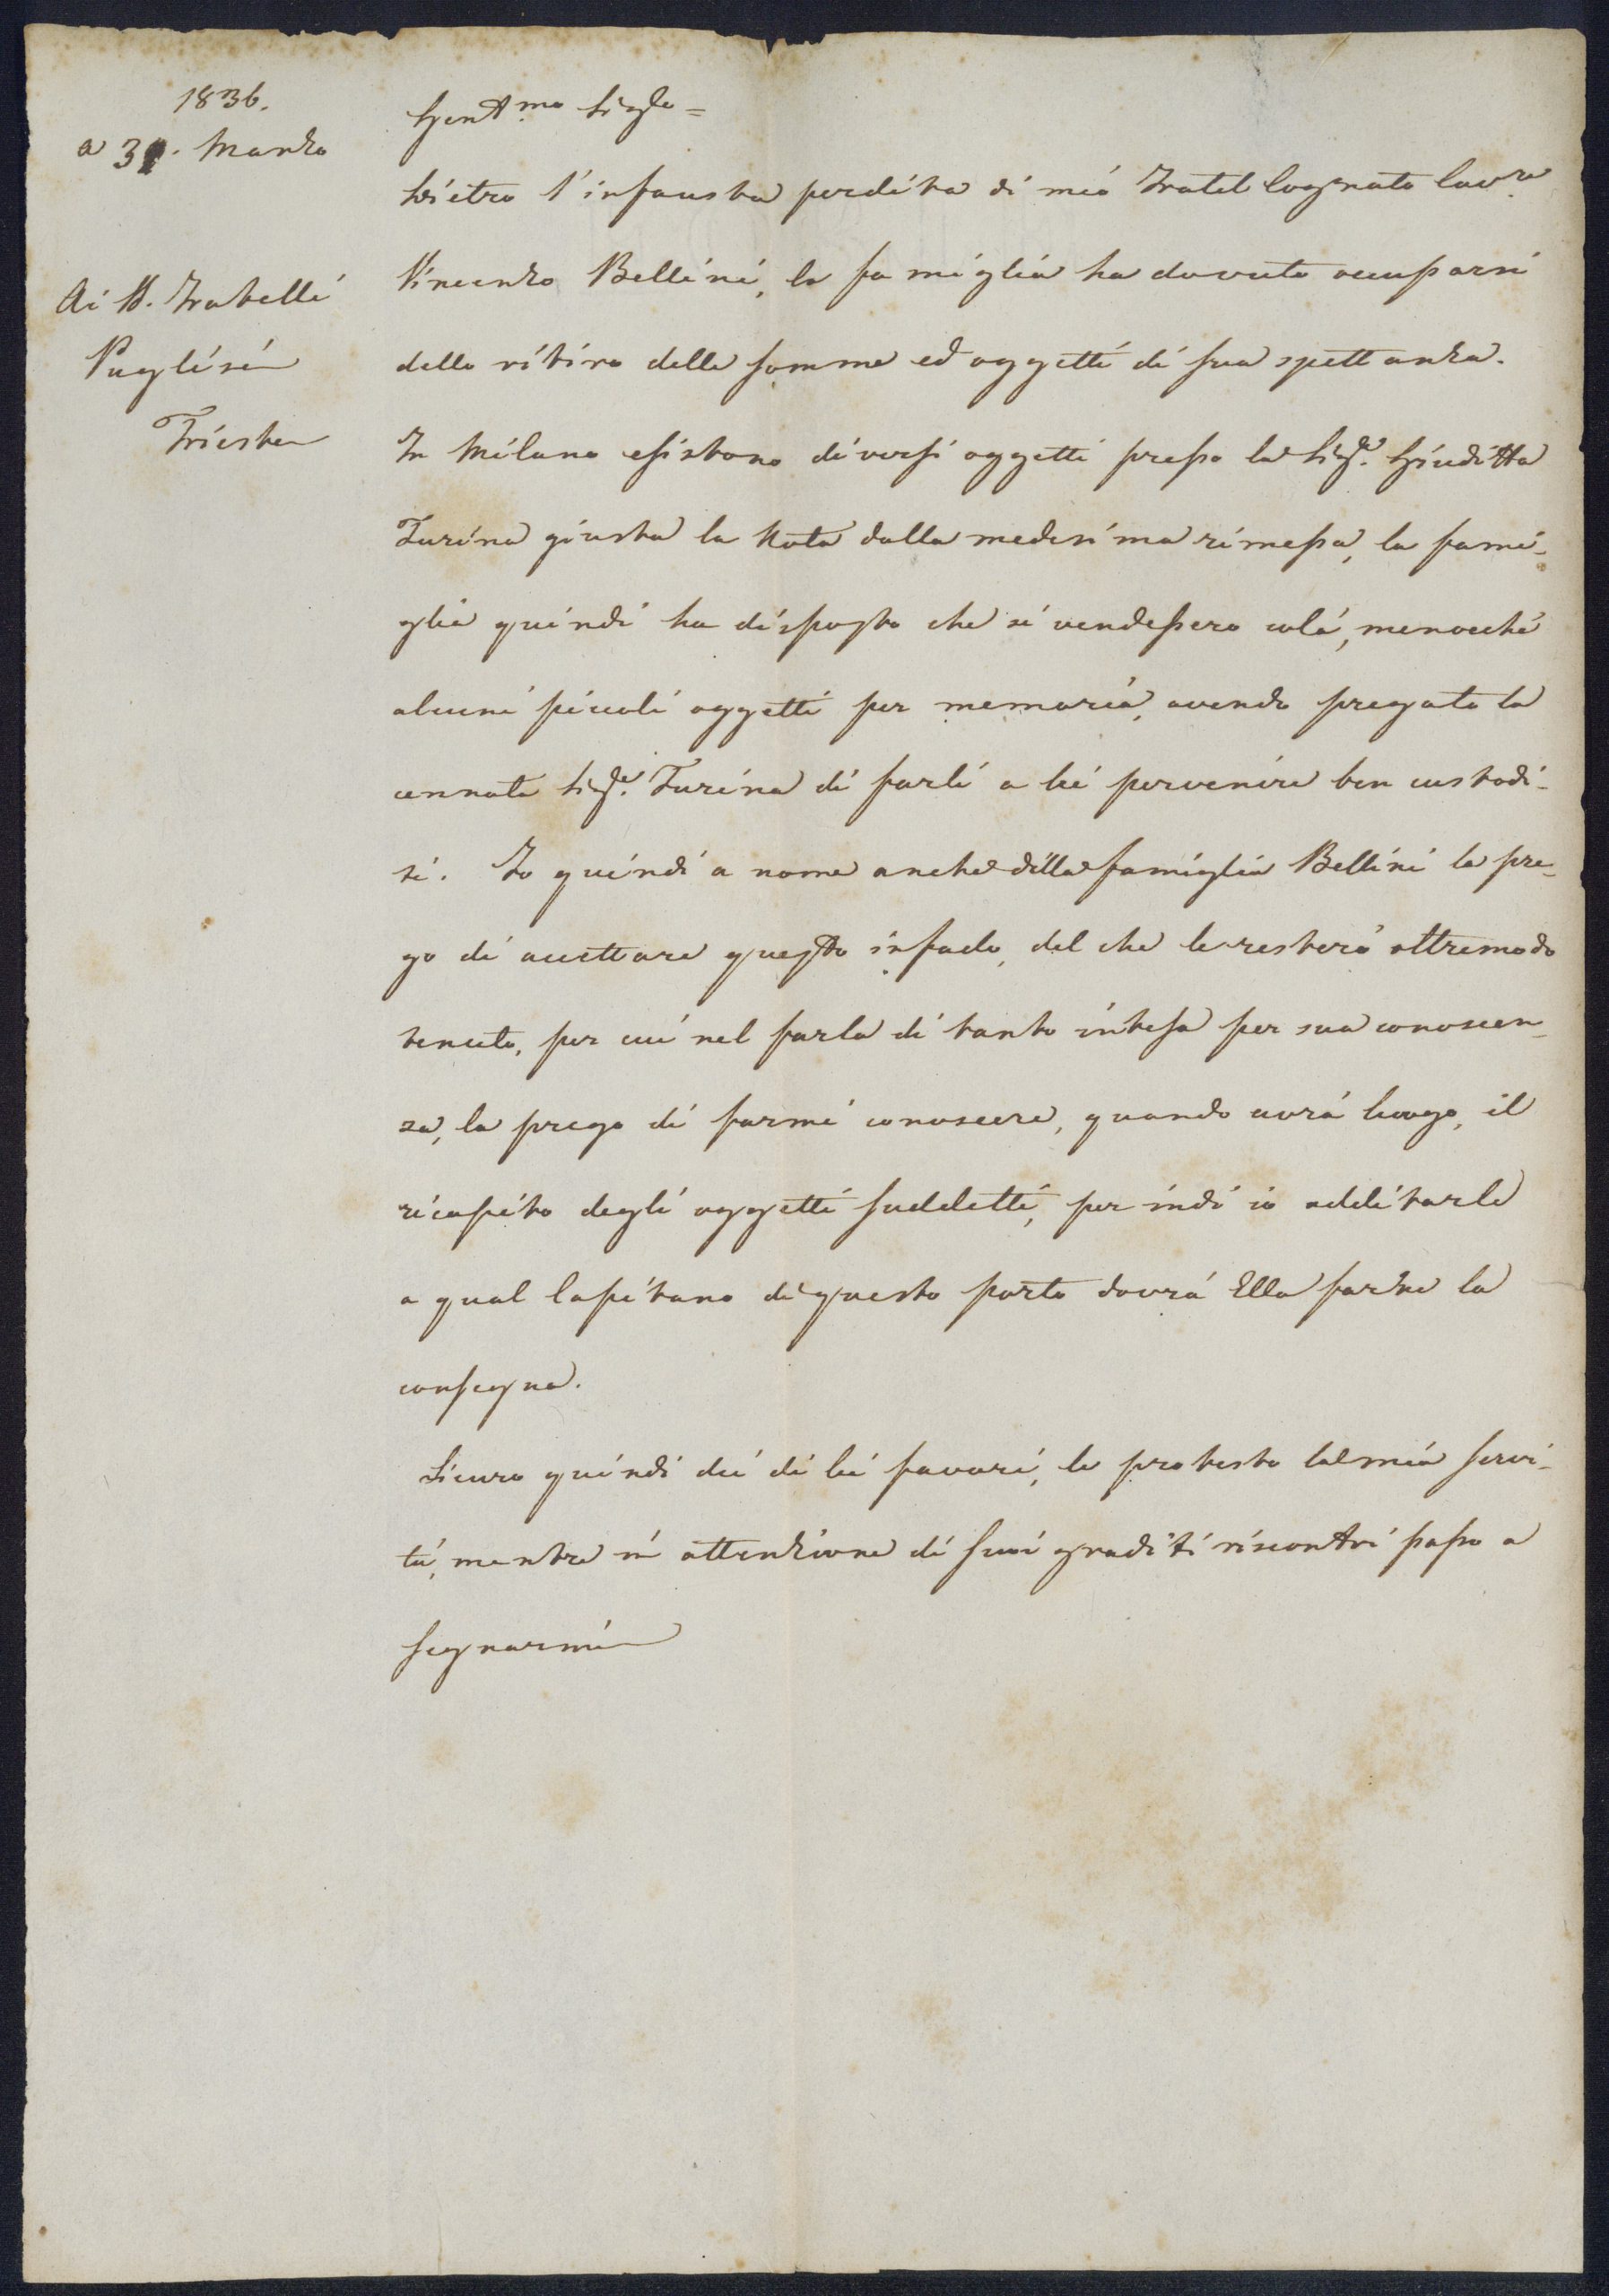 1836.
a 31. Marzo
Ai SS. Fratelli
Puglisi
Trieste
Gent.mo Sigre =
Dietro l'infausta perdita di mio Fratel Cognato Cavre
Vincenzo Bellini, la famiglia ha dovuto occuparsi
dello ritiro delle somme ed oggetti di sua spettanza.
In Milano esistono diversi oggetti presso la Sigra. Giuditta
Turina giusta la Nota dalla medesima rimessa, la fami-
glia quindi ha disposto che si vendessero colà, menocché
alcuni piccoli oggetti per memoria, avendo pregato la
cennata Sigra. Turina di farli a lei pervenire ben custodi-
ti. Io quindi a nome anche della famiglia Bellini la pre-
go di accettare questo infado, del che le resterò oltremodo
tenuto, per cui nel farla di tanto intesa per sua conoscen-
za, la prego di farmi conoscere, quando avrà luogo, il
ricapito degli oggetti suddetti, per indi io additarle
a qual Capitano di questo porto dovrà Ella farne la
consegna.
Sicuro quindi dei di lei favori, le protesto la mia servi-
tù, mentre in attenzione di suoi graditi riscontri passo a
segnarmi